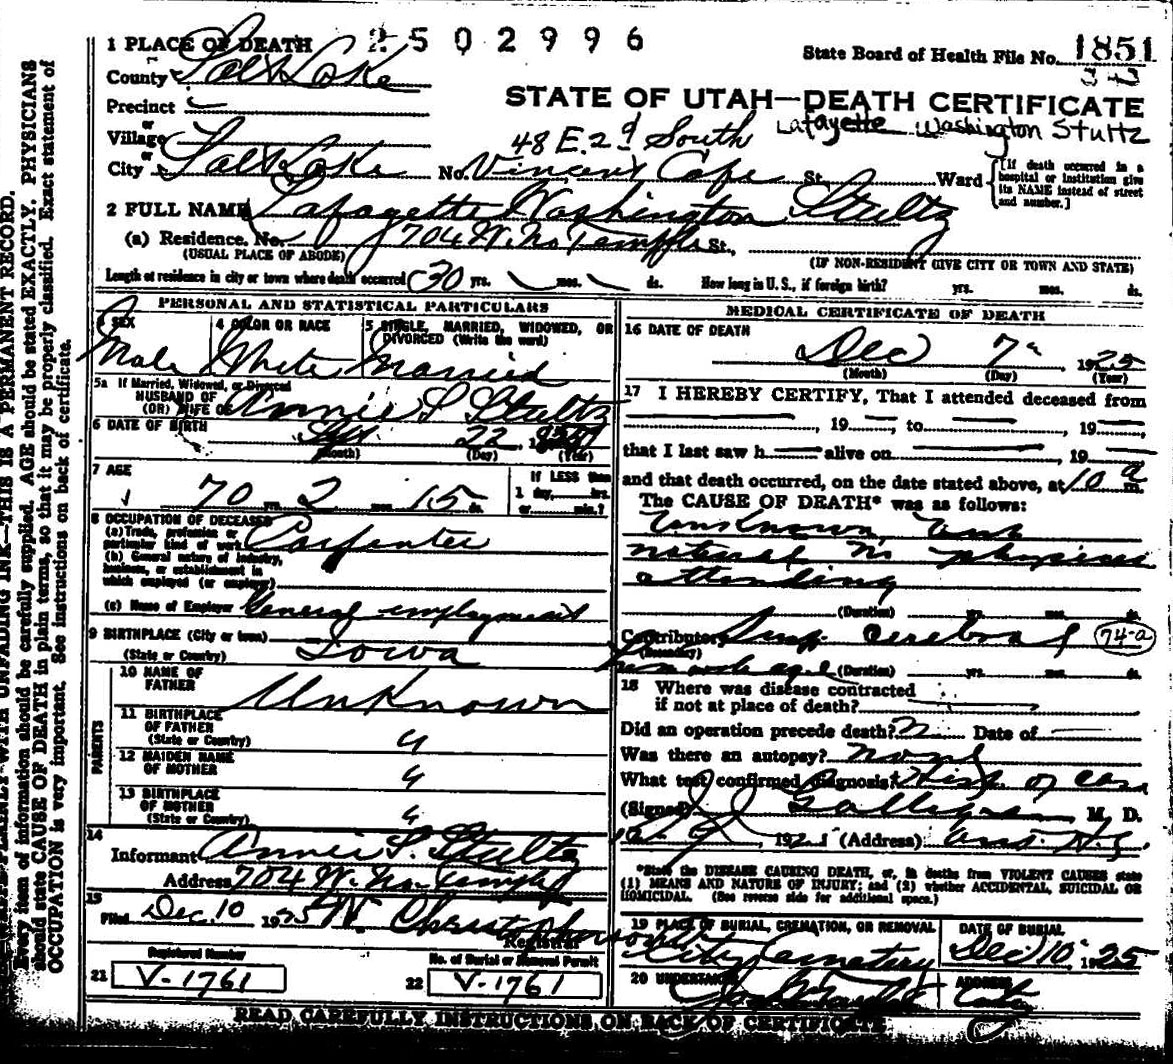 1 PLACE OF DEATH 2502996
State Board of Health File No. 1851
County Salt Lake
STATE OF UTAH—DEATH CERTIFICATE
Precinct
or
Village
48 E. 2d South Lafayette Washington Stultz
or
City Salt Lake No. Vincent Cafe St. Ward
[If death occurred in a hospital or institution give its NAME instead of street and number.]
2 FULL NAME Lafayette Washington Stultz
(a) Residence. No. 704 W. No Temple St.
(USUAL PLACE OF ABODE) (IF NON-RESIDENT GIVE CITY OR TOWN AND STATE)
Length of residence in city or town where death occurred 30 yrs. mos. ds. How long in U.S., if foreign birth? yrs. mos. ds.
PERSONAL AND STATISTICAL PARTICULARS
3 SEX 4 COLOR OR RACE 5 SINGLE, MARRIED, WIDOWED, OR
DIVORCED (Write the word)
Male White Married
5a If Married, Widowed, or Divorced
HUSBAND OF
(OR) WIFE OF Annie S Stultz
6 DATE OF BIRTH Sept 22, 
(Month) (Day) (Year)
7 AGE If LESS than
70 yrs. 2 mos. 15 ds. 1 day, hrs.
or min.?
8 OCCUPATION OF DECEASED
(a) Trade, profession or
particular kind of work Carpenter
(b) General nature of industry,
business, or establishment in
which employed (or employer)
(c) Name of Employer General employment
9 BIRTHPLACE (City or town)
(State or Country) Iowa
PARENTS
10 NAME OF
FATHER Unknown
11 BIRTHPLACE
OF FATHER
(State or Country)
12 MAIDEN NAME
OF MOTHER
13 BIRTHPLACE
OF MOTHER
(State or Country)
14
Informant Annie S. Stultz
Address 704 W. No. Temple
15
Filed Dec. 10 1925 W. Christopherson
Registrar
Registered Number No. of Burial or Removal Permit
21 V-1761 22 V-1761
MEDICAL CERTIFICATE OF DEATH
16 DATE OF DEATH
Dec 7 1925
(Month) (Day) (Year)
17 I HEREBY CERTIFY, That I attended deceased from
, 19 , to , 19
that I last saw h alive on , 19
and that death occurred, on the date stated above, at 10 a m.
The CAUSE OF DEATH* was as follows:
Unknown but
natural no physician
attending
(Duration) yrs. mos. ds.
Contributory cerebral 74-a
(Secondary)
(Duration) yrs. mos. ds.
18 Where was disease contracted
if not at place of death?
Did an operation precede death? Date of
Was there an autopsy? none
What test confirmed diagnosis? Hist of case
(Signed) M. D.
, 192 (Address)
*State the DISEASE CAUSING DEATH, or, in deaths from VIOLENT CAUSES state
(1) MEANS AND NATURE OF INJURY; and (2) whether ACCIDENTAL, SUICIDAL OR
HOMICIDAL. (See reverse side for additional space.)
19 PLACE OF BURIAL, CREMATION, OR REMOVAL DATE OF BURIAL
City Cemetery Dec 10 1925
20 UNDERTAKER ADDRESS
City
READ CAREFULLY INSTRUCTIONS ON BACK OF CERTIFICATE
WITH UNFADING INK—THIS IS A PERMANENT RECORD.
Every item of information should be carefully supplied. AGE should be stated EXACTLY. PHYSICIANS
should state CAUSE OF DEATH in plain terms, so that it may be properly classified. Exact statement of
OCCUPATION is very important. See instructions on back of certificate.